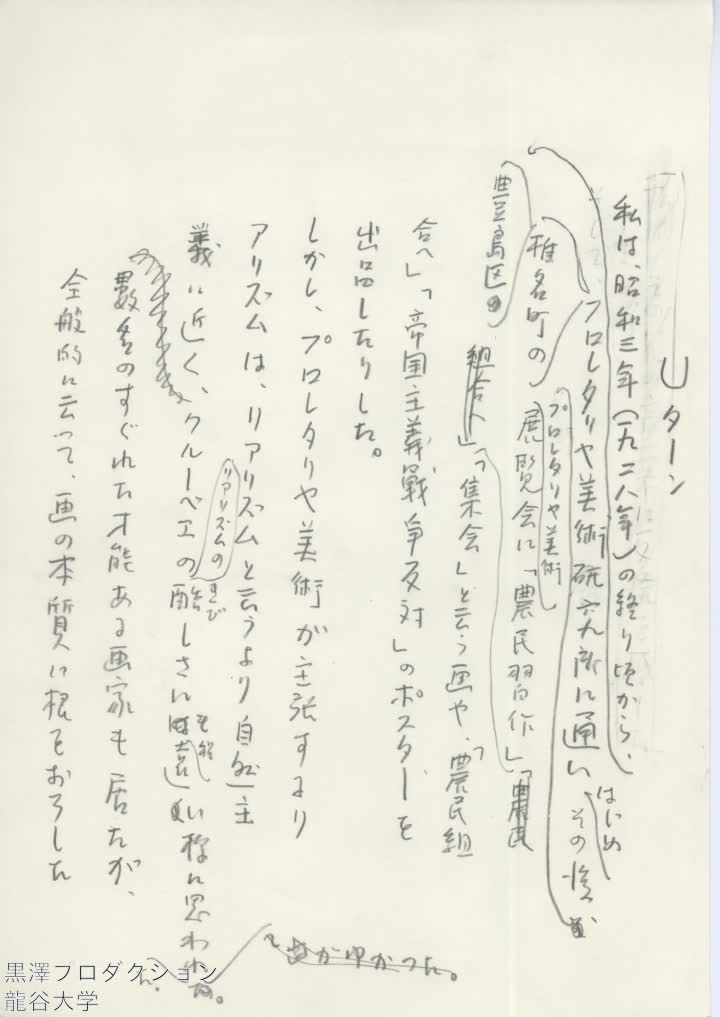 Uターン
私は、昭和三年(一九二八年)の終り頃から、
豊島区の
椎名町の
プロレタリヤ美術研究所に通い
はじめ
その後
プロレタリヤ美術
展覧会に「農民習作」、
組合」「集会」と云う画や、「農民組
合へ」「帝国主義戦争反対」のポスターを
出品したりした。
しかし、プロレタリヤ美術が主張するリ
アリズムは、リアリズムと云うより自然主
義に近く、クールベエの
リアリズムの
酷しさには
きび
遠い様に思われ
た。
歯がゆかった。
数多のすぐれた才能ある画家も居たが、
全般的に云って、画の本質に根をおろした
黒澤プロダクション
龍谷大学